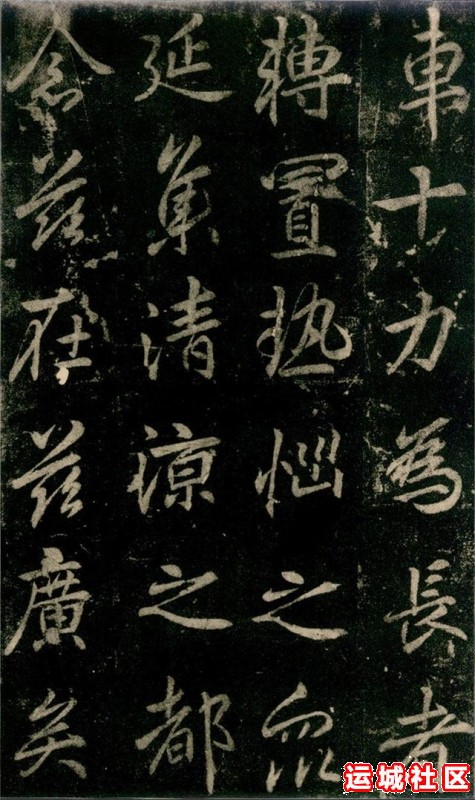 車十力為長者
轉置熱惱之眾
延集清涼之都
念茲在茲廣矣
运城社区